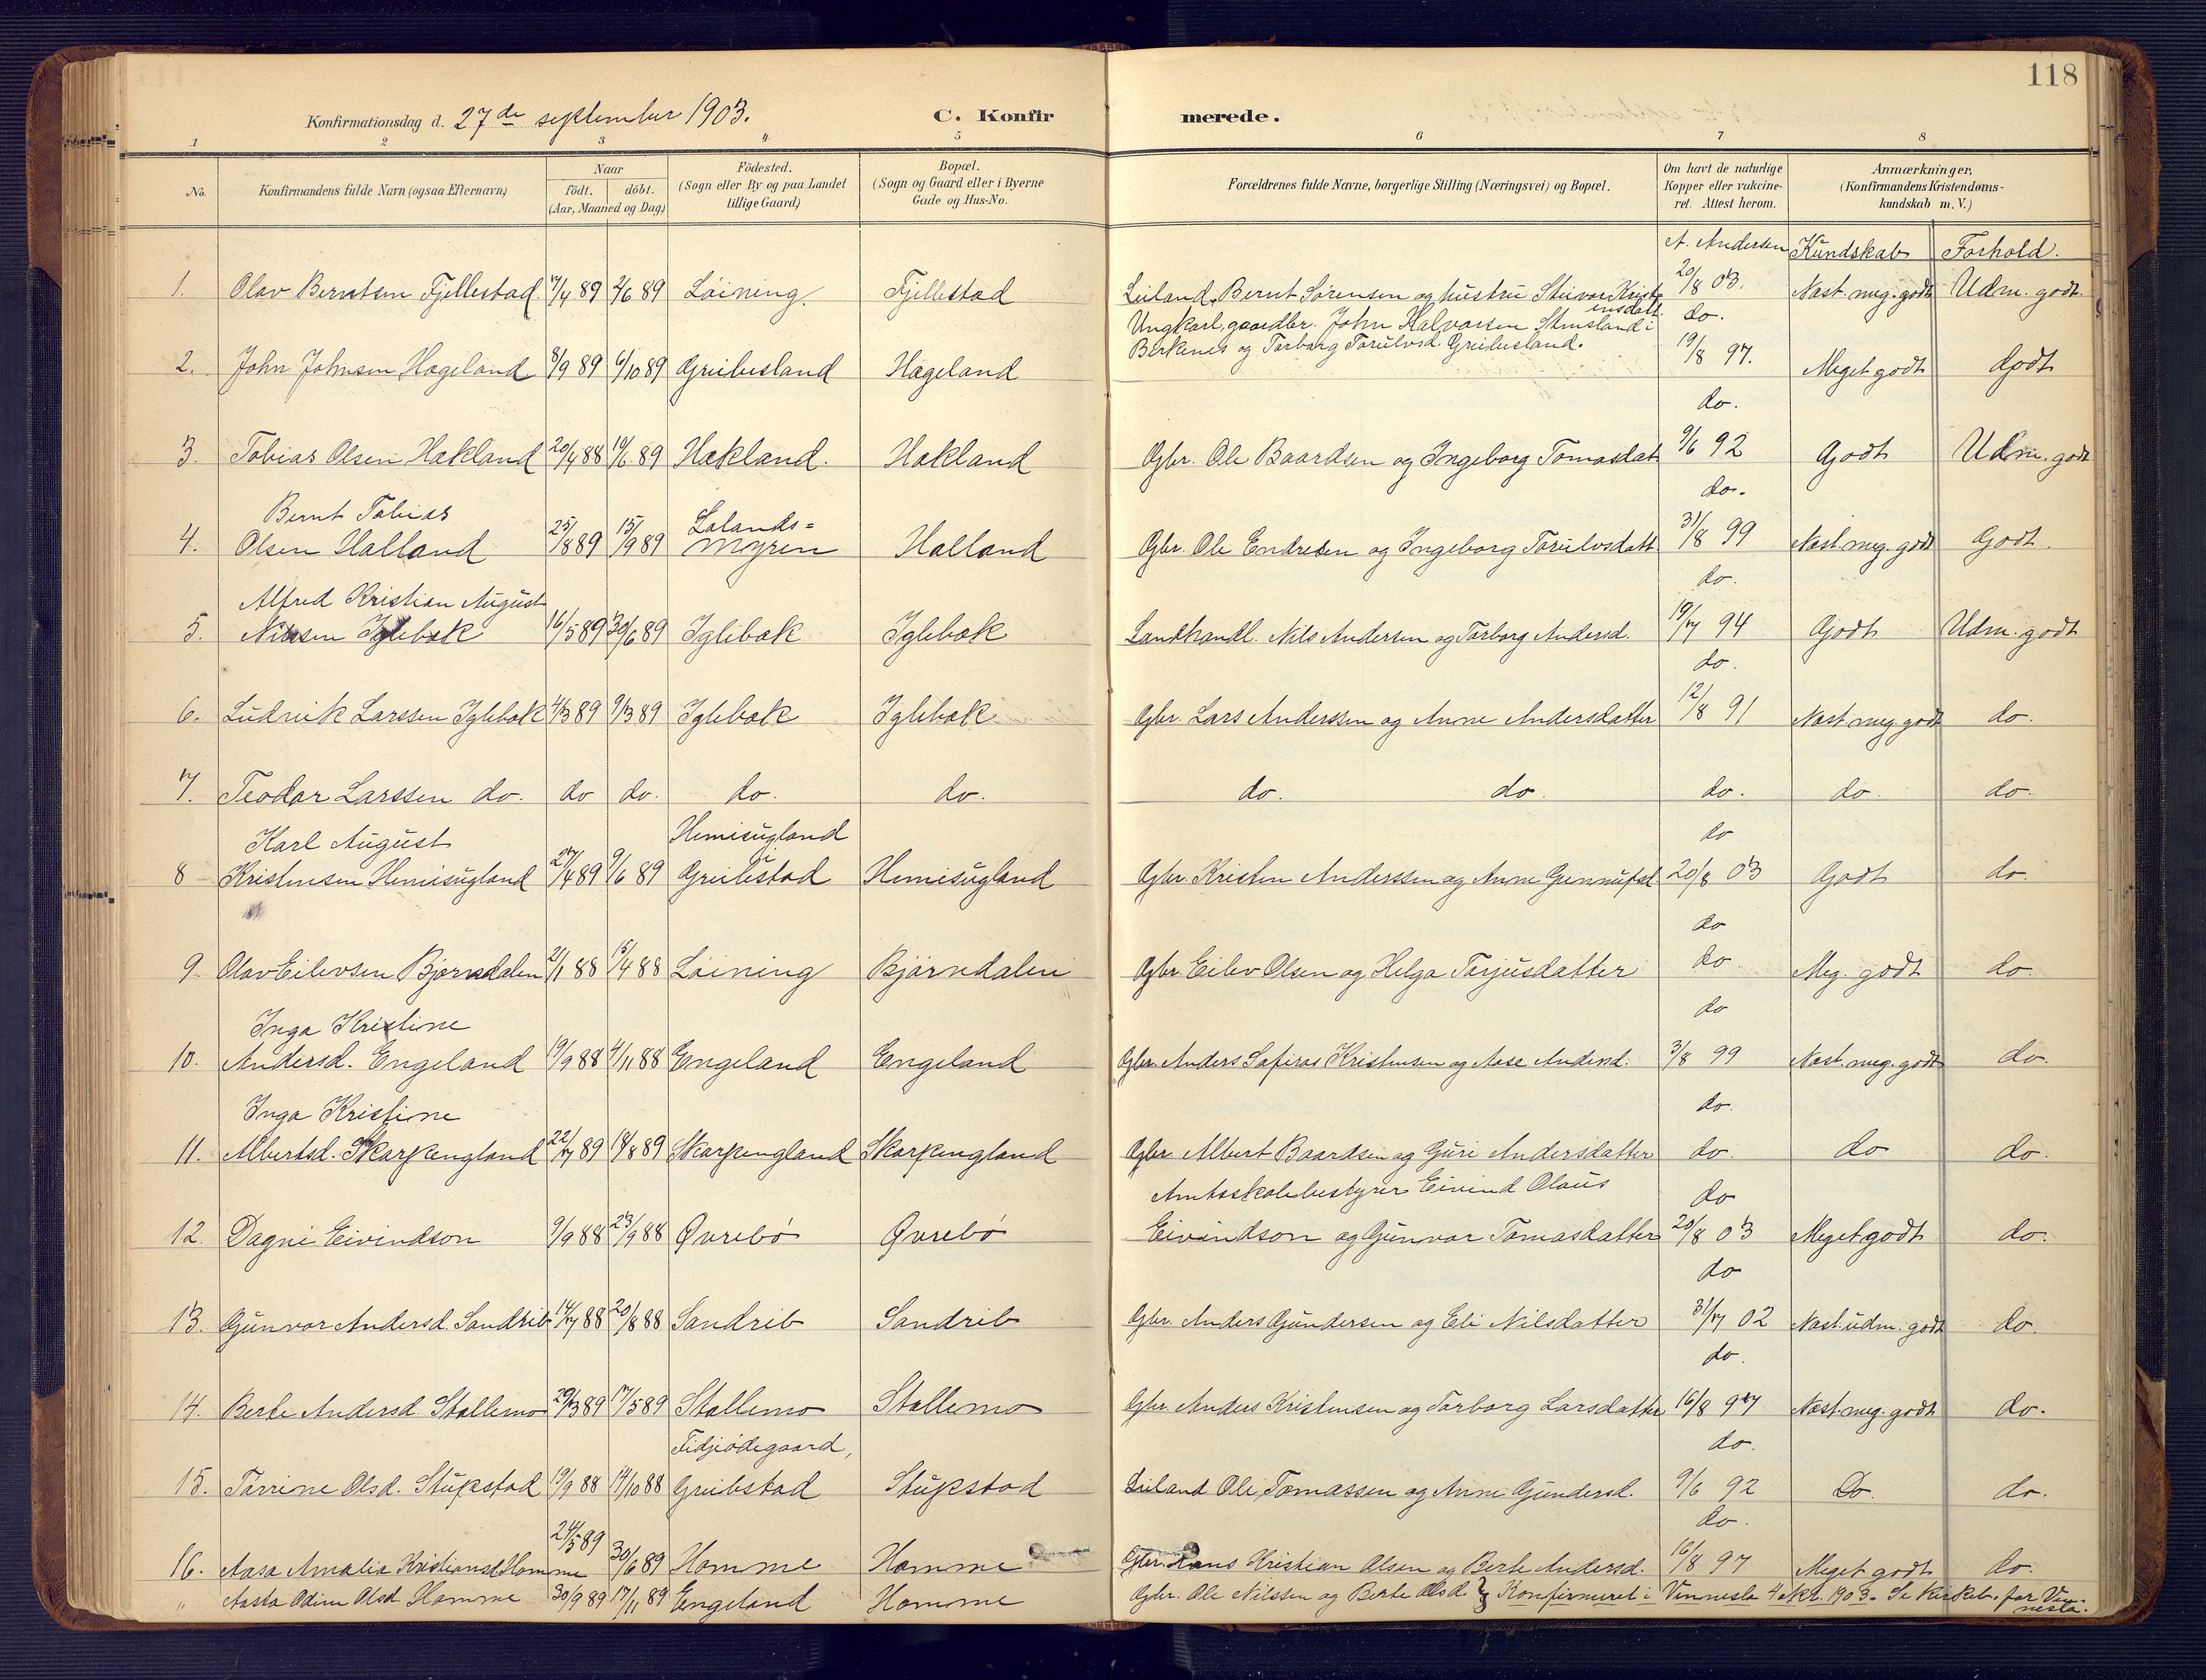 118
Konfirmationsdag d. 27de september 1903.
C. Konfir merede.
1 2 3 4 5 6 7 8
No. Konfirmandens fulde Navn (ogsaa Efternavn) Naar födt. döbt. (Aar, Maaned og Dag) Födested. (Sogn eller By og paa Landet tillige Gaard) Bopæl. (Sogn og Gaard eller i Byerne Gade og Hus-No. Forældrenes fulde Navne, borgerlige Stilling (Næringsvei) og Bopæl. Om havt de naturlige Kopper eller vakcineret. Attest herom. Anmærkninger, (Konfirmandens Kristendomskundskab m. V.)
A. Andersen Kundskab Forhold.
1. Olav Berntsen Fjellestad. 7/4 89 2/6 89 Löining. Fjellestad Leiland. Bernt Sørensen og hustru Kristensdatt. 20/8 03. Næst. meg. godt Udm. godt.
Ungkarl, gaardbr. John Halvorsen Stensland i do.
2. John Johnsen Hageland 8/9 89 6/10 89 Greibesland Hageland Birkenes og Torborg Torulvsd Greibesland. 19/8 97. Meget godt Godt
do.
3. Tobias Olsen Hakland 20/4 88 10/6 89 Hakland. Hakland Gbr. Ole Baardsen og Ingeborg Tomasdat. 9/6 92 Godt Udm. godt
do.
Bernt Tobias Lalands=
4. Olsen Halland 25/8 89 15/9 89 myren Halland Gbr. Ole Endresen og Ingeborg Torulvsdatt. 31/8 99 Næst. meg. godt Godt.
do.
Alfred Kristian August
5. Nilsen Iglebæk 16/5 89 30/6 89 Iglebæk Iglebæk Landhandl. Nils Andersen og Torborg Andersd. 19/7 94 Godt Udm. godt
do.
6. Ludvik Larssen Iglebæk 4/3 89 9/3 89 Iglebæk Iglebæk Gbr. Lars Anderssen og Anne Andersdatter 12/8 91 Næst. meg. godt do.
7. Teodor Larssen do. do do. do. do. do. do. do. do. do.
do
Karl August Hemisugland
8 Kristensen Hemisugland 27/4 89 9/6 89 i Greibstad Hemisugland Gbr. Kristen Anderssen og Anne Gunnufsd. 20/8 03 Godt do.
do
9. Olav Eilevsen Bjørndalen 2/1 88 15/4 88 Löining Bjørndalen Gbr. Eilev Olsen og Helga Torjusdatter do. Meg. godt do.
do
Inga Kristine
10. Andersd. Engeland 19/9 88 4/11 88 Engeland Engeland Gbr. Anders Safiras Kristensen og Aase Andersd. 3/8 99 Næst. meg. godt do.
do.
Inga Kristine
11. Albertsd. Skarpengland 22/7 89 18/8 89 Skarpengland Skarpengland Gbr. Albert Baardsen og Guri Andersdatter do. do do.
Amtsskolebestyrer Eivind Olaus do
12. Dagni Eivindson 9/9 88 23/9 88 Øvrebö Øvrebö Eivindson og Gunvor Tomasdatter 20/8 03 Meget godt do.
do
13. Gunvor Andersd. Sandrib 14/7 88 20/8 88 Sandrib Sandrib Gbr. Anders Gundersen og Eli Nilsdatter 31/7 02 Næst. udm. godt do.
do.
14. Berte Andersd. Stallemo 29/3 89 17/5 89 Stallemo Stallemo Gbr. Anders Kristensen og Torborg Larsdatter 16/8 97 Næst. meg. godt do.
Fidjeödegaard, do.
15. Torrine Olsd. Stupstad 19/9 88 14/10 88 Greibstad Stupstad Leiland Ole Tomassen og Anne Gundersd. 9/6 92 Do. do.
do.
16. Aasa Amalia Kristiansd Homme 24/5 89 30/6 89 Homme Homme Gbr. Hans Kristian Olsen og Berte Andersd. 16/8 97 Meget godt do.
" Aasta Odine Olsd Homme 30/9 89 17/11 89 Engeland Homme Gbr. Ole Nilssen og Berte Olsd. Konfirmeret i Vennesla 4 okt. 1903. Se kirkeb. for Vennesla.